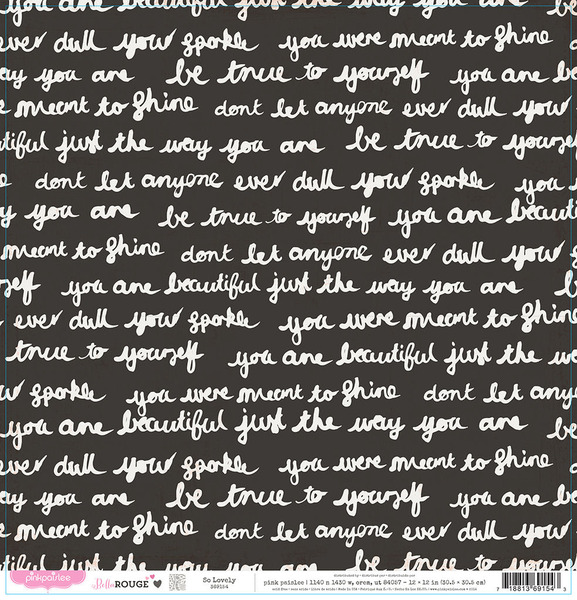 you are beautiful just the way you are
ever dull your sparkle you were meant to shine
ay you are be true to yourself you are be
e meant to shine dont let anyone ever dull your
tiful just the way you are be true to yourse
dont let anyone ever dull your sparkle you
y you are be true to yourself you are beauti
meant to shine dont let anyone ever dull your
self you are beautiful just the way you are b
ever dull your sparkle you were meant to shine
true to yourself you are beautiful just the w
sparkle you were meant to shine dont let any
you are beautiful just the way you are b
ever dull your sparkle you were meant to shine
ay you are be true to yourself you are be
meant to shine dont let anyone ever dull your
pinkpaislee
Bella ROUGE
So Lovely
369154
pink paislee | 1140 n 1430 w, orem, ut 84057 – 12 x 12 in (30.5 x 30.5 cm)
7 18813 69154 3